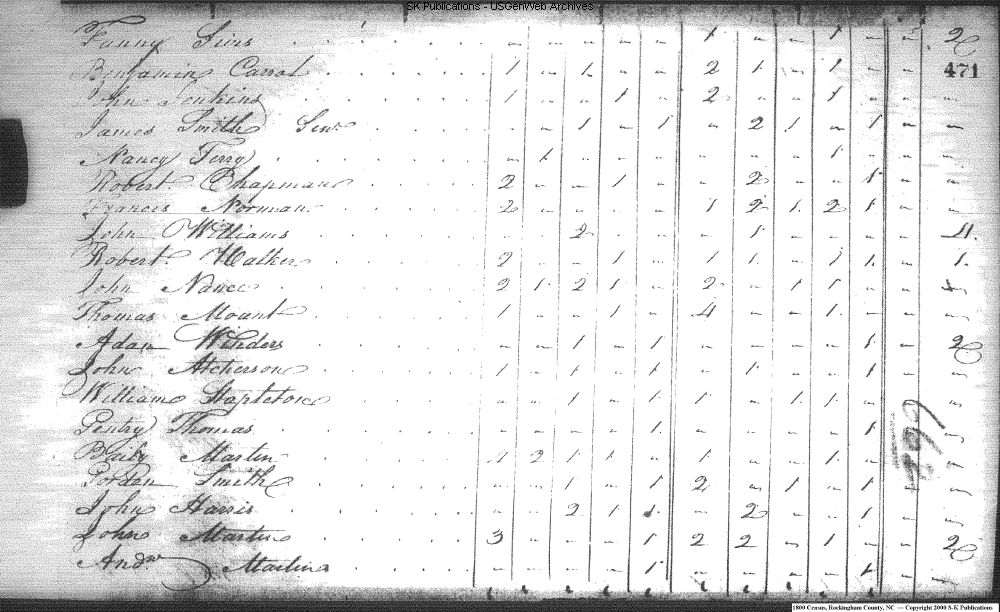 SK Publications - USGenWeb Archives
Fanny Sims - - - - 1 - - 1 - - 2
471
Benjamin Carrol 1 - 1 - - 2 1 - 1 - - -
John Jenkins 1 - - 1 - 2 - - 1 - - -
James Smith Senr - - 1 - 1 - 2 1 - 1 - -
Nancy Terry - 1 - - - - - - 1 - - -
Robert Chapman 2 - - 1 - - 2 - - 1 - -
Francis Norman 2 - - - - 1 2 1 2 1 - -
John Williams - - 2 - - - 1 - - - - 4
Robert Walker 2 - - 1 - 1 1 - 1 1 - 1
John Nance 2 1 2 1 - 2 - 1 1 - -
Thomas Mount 1 - - 1 - 4 - - 1 - - -
Adam - - 1 - 1 - - - - 1 - 2
John Atcherson 1 - 1 - 1 - 1 - - 1 - -
William Stapleton - - 1 - 1 1 - 1 1 - - -
Gentry Thomas - - - - 1 - - - - 1 -
Martin 4 2 1 1 - 1 - - 1 -
Smith - - 1 - 1 2 - 1 - 1 -
John Harris - - 2 1 1 - 2 - - 1 -
John Martin 3 - - - 1 2 2 - 1 - - 2
Andw Martin - - - - 1 - - - - 1 -
1800 Census, Rockingham County, NC — Copyright 2000 S-K Publications